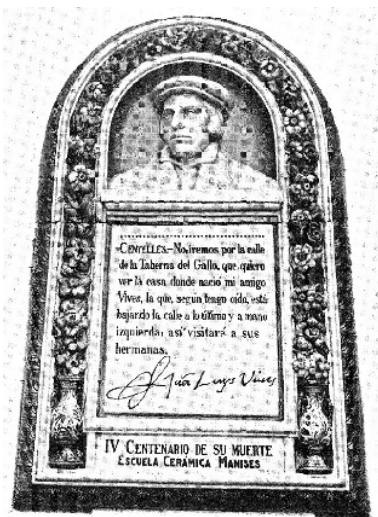 «CENTELLES.—No, iremos por la calle
de la Taberna del Gallo, que quiero
ver la casa donde nació mi amigo
Vives, la que, según tengo oída, está
bajando la calle a lo último y a mano
izquierda; así visitaré a sus
hermanas.
Juan Luys Vives
IV CENTENARIO DE SU MUERTE
ESCUELA CERÁMICA MANISES